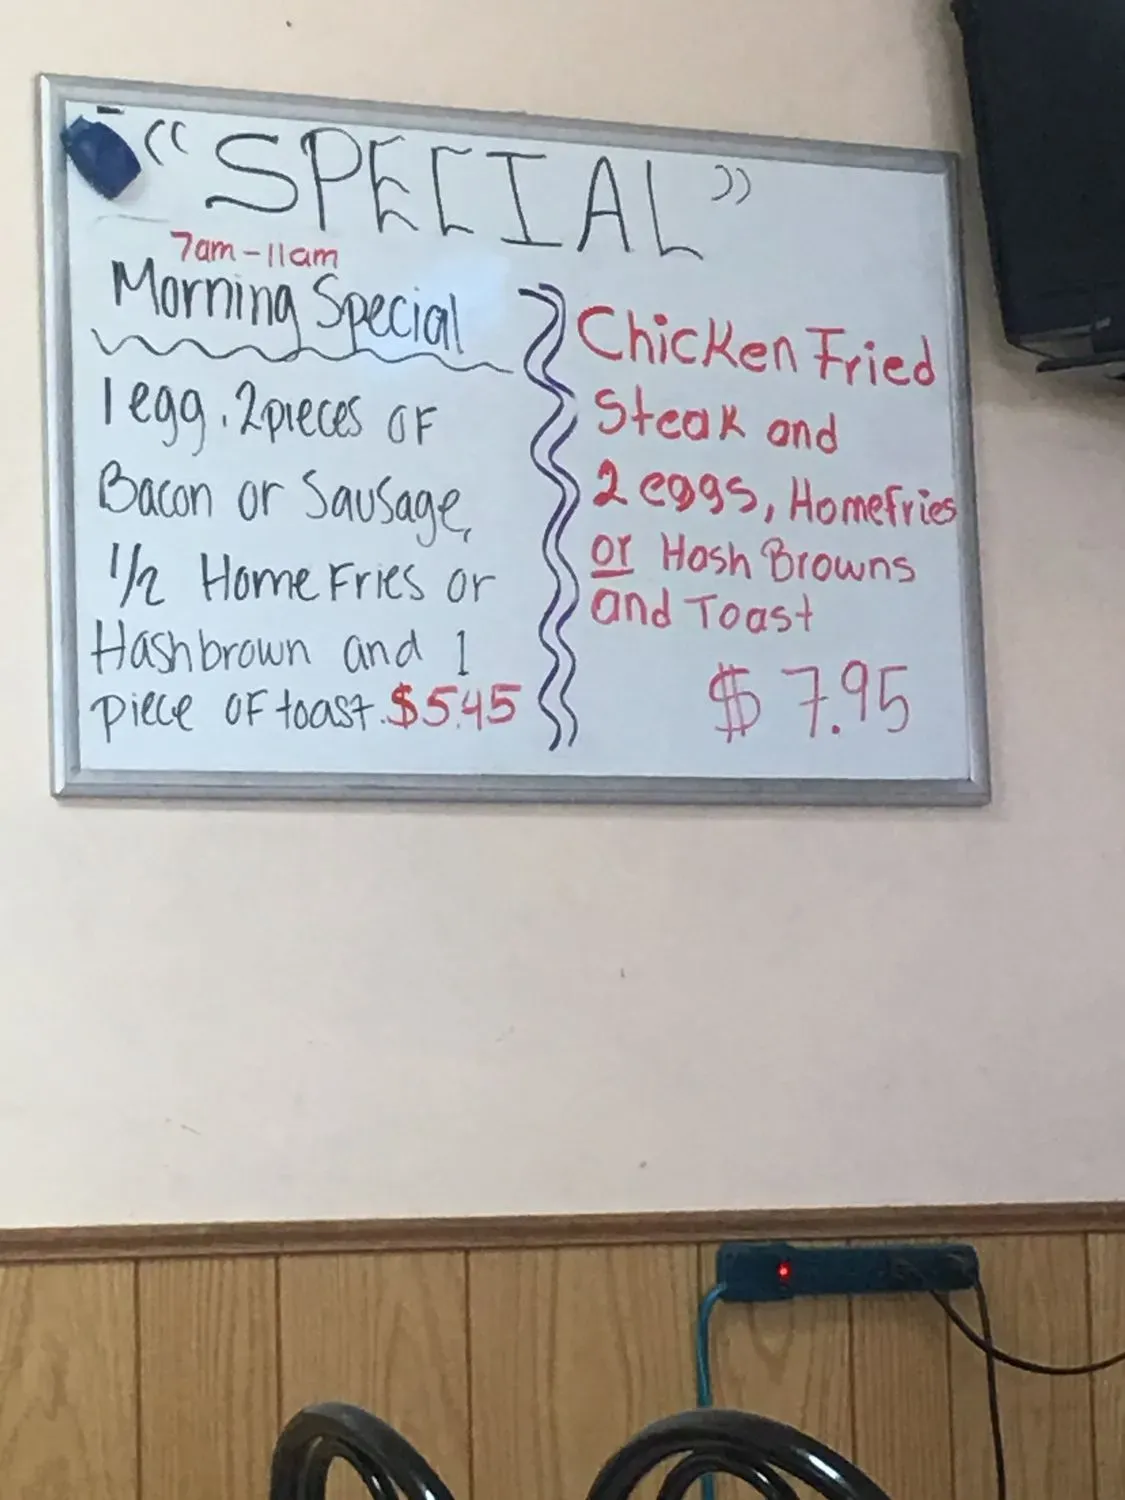 "SPECIAL"
7am-11am
Morning Special
1 egg, 2 pieces OF
Bacon or Sausage,
1/2 Home Fries or
Hashbrown and 1
piece OF toast. $5.45
Chicken Fried
Steak and
2 eggs, Homefries
or Hash Browns
and Toast
$ 7.95